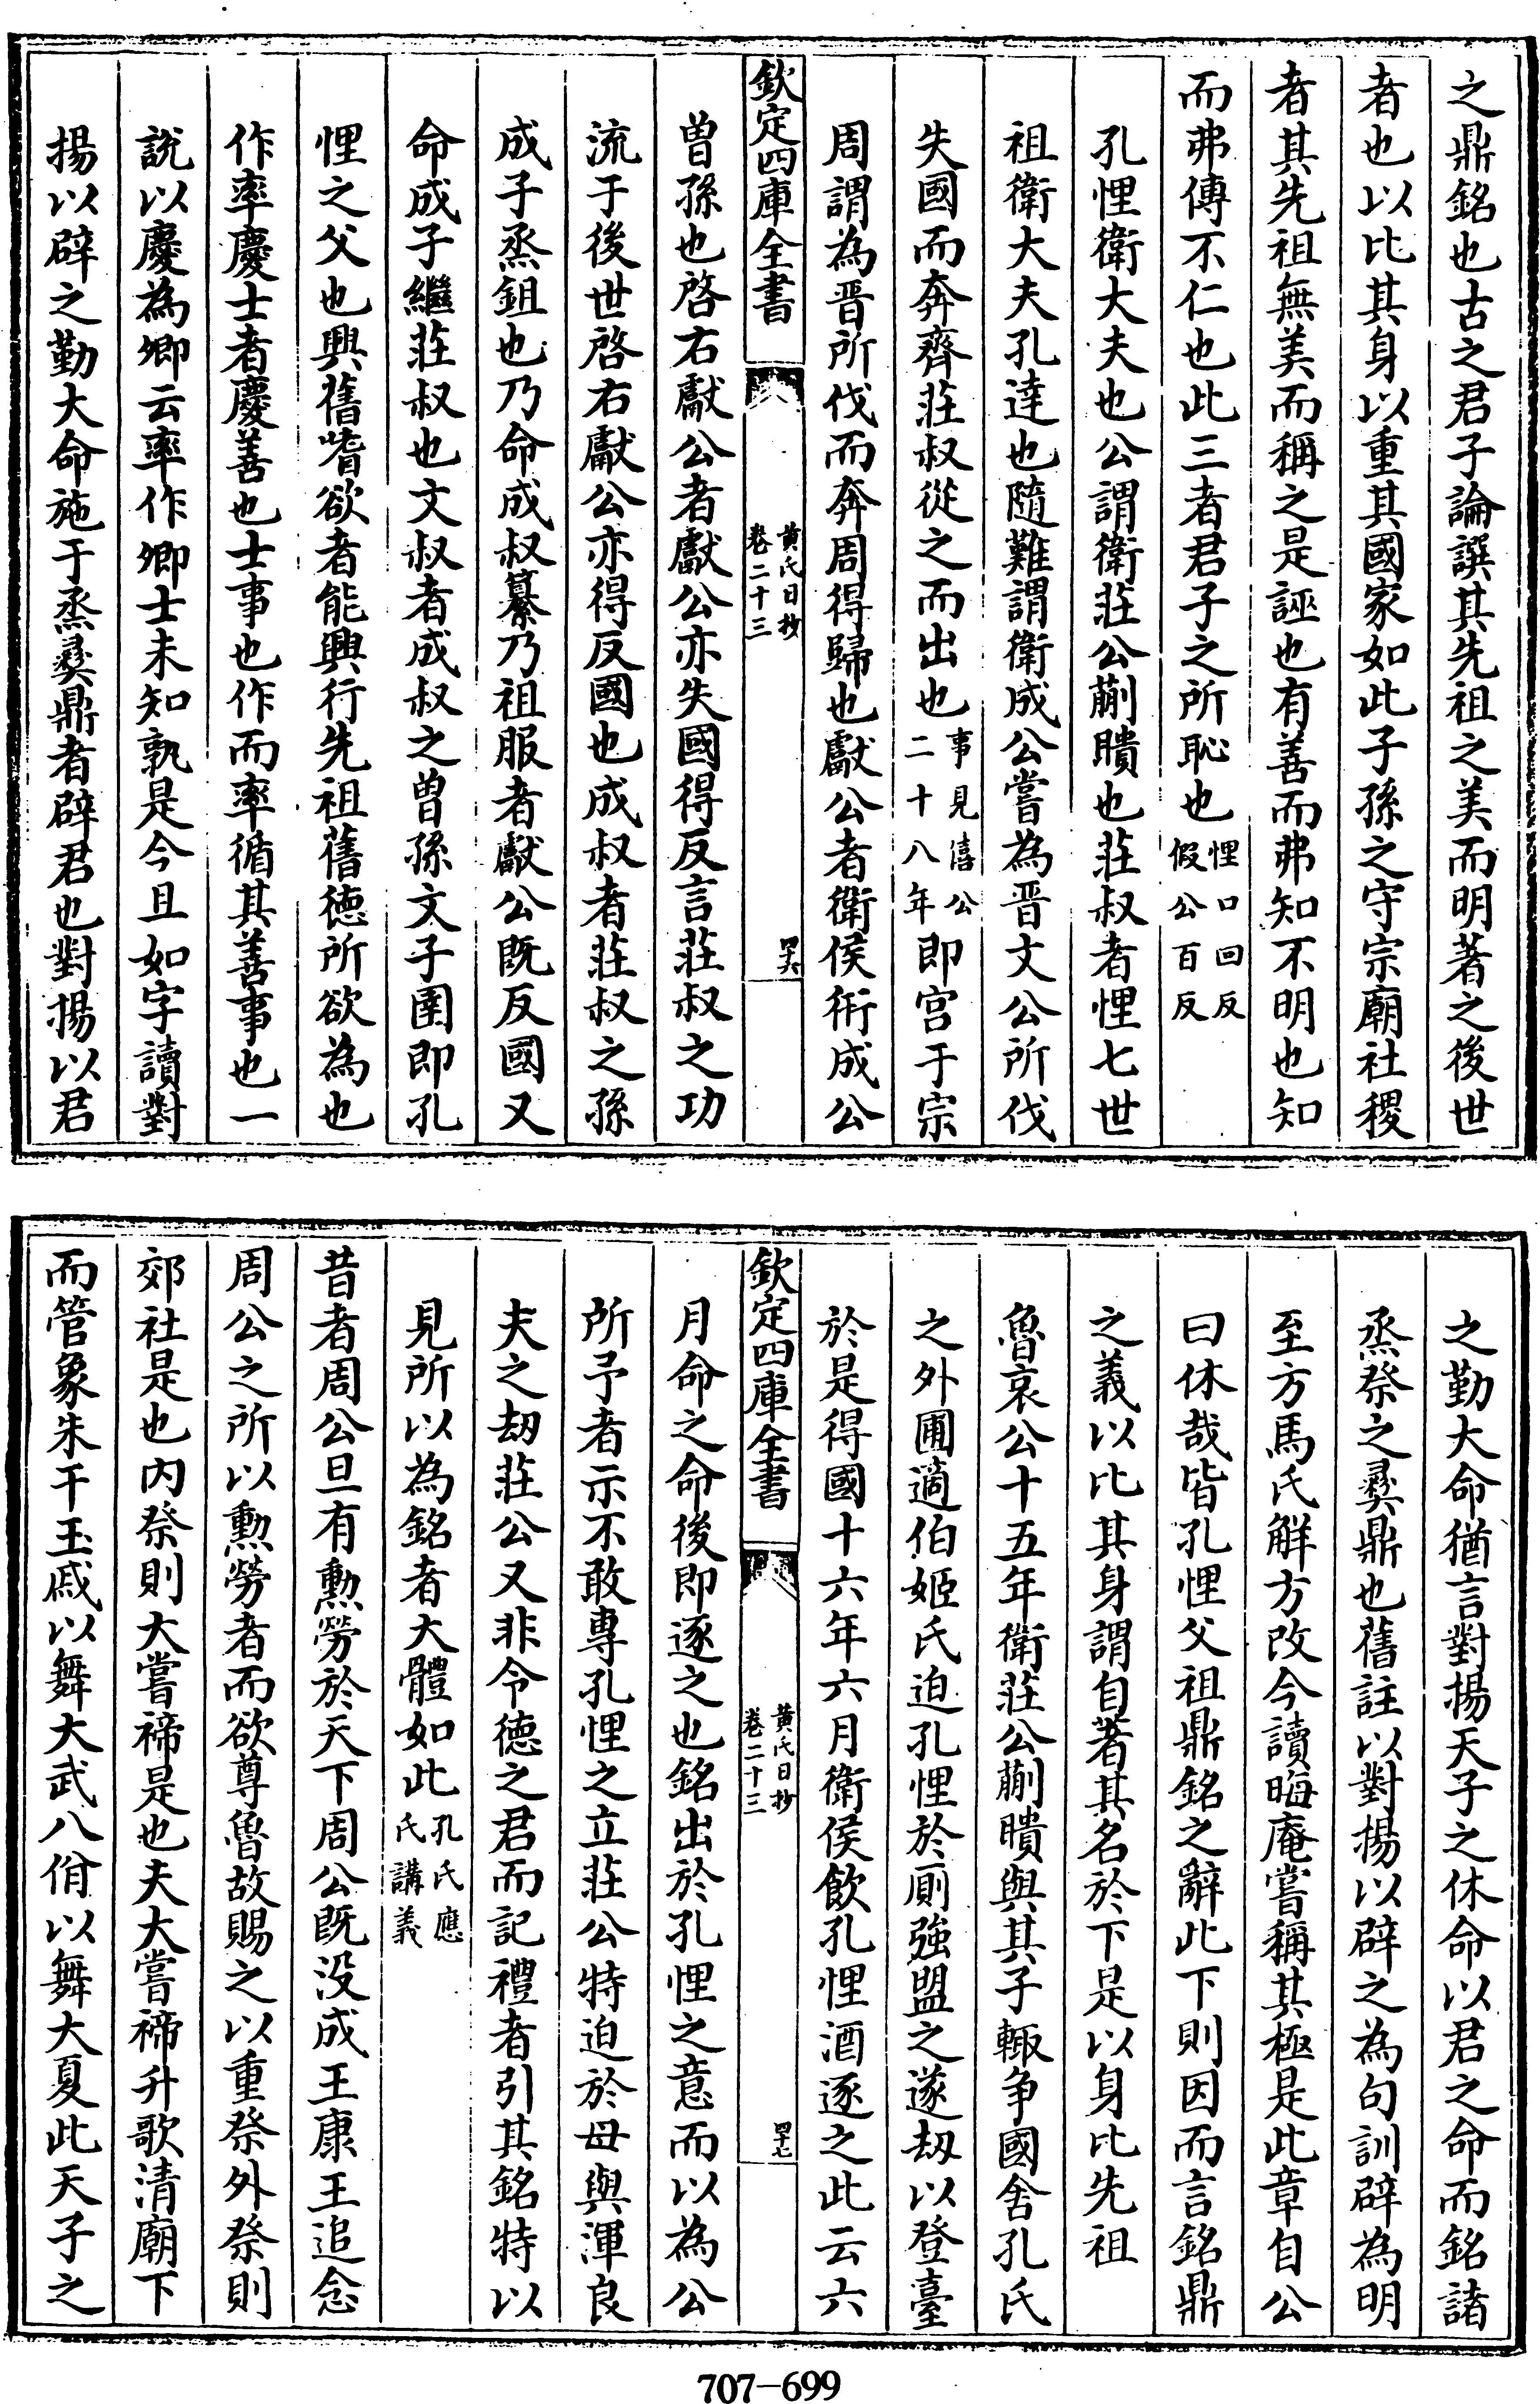 之鼎銘也古之君子論譔其先祖之美而明著之後世
者也以比其身以重其國家如此子孫之守宗廟社稷
者其先祖無美而稱之是誣也有善而弗知不明也知
而弗傳不仁也此三者君子之所恥也悝口回反假公百反
孔悝衛大夫也公謂衛莊公蒯聵也莊叔者悝七世
祖衛大夫孔達也隨難謂衛成公嘗為晋文公所伐
失國而奔齊莊叔從之而出也事見僖公二十八年即宫于宗
周謂為晋所伐而奔周得歸也獻公者衛侯衎成公
欽定四庫全書
黄氏日抄
卷二十三
四六
曽孫也啓右獻公者獻公亦失國得反言莊叔之功
流于後世啓右獻公亦得反國也成叔者莊叔之孫
成子烝鉏也乃命成叔纂乃祖服者獻公既反國又
命成子繼莊叔也文叔者成叔之曽孫文子圉即孔
悝之父也興舊嗜欲者能興行先祖舊徳所欲為也
作率慶士者慶善也士事也作而率循其善事也一
說以慶為卿云率作卿士未知孰是今且如字讀對
揚以辟之勤大命施于烝彝鼎者辟君也對揚以君
之勤大命猶言對揚天子之休命以君之命而銘諸
烝祭之彝鼎也舊註以對揚以辟之為句訓辟為明
至方馬氏解方改今讀晦庵嘗稱其極是此章自公
曰休哉皆孔悝父祖鼎銘之辭此下則因而言銘鼎
之義以比其身謂自著其名於下是以身比先祖
魯哀公十五年衛莊公蒯聵與其子輙争國舍孔氏
之外圃適伯姬氏迫孔悝於厠強盟之遂刼以登臺
於是得國十六年六月衛侯飲孔悝酒逐之此云六
欽定四庫全書
黄氏日抄
卷二十三
四七
月命之命後即逐之也銘出於孔悝之意而以為公
所予者示不敢専孔悝之立莊公特迫於母與渾良
夫之刼莊公又非令徳之君而記禮者引其銘特以
見所以為銘者大體如此孔氏應氏講義
昔者周公旦有勲勞於天下周公既没成王康王追念
周公之所以勲勞者而欲尊魯故賜之以重祭外祭則
郊社是也内祭則大嘗禘是也夫大嘗禘升歌清廟下
而管象朱干玉戚以舞大武八佾以舞大夏此天子之
707-699